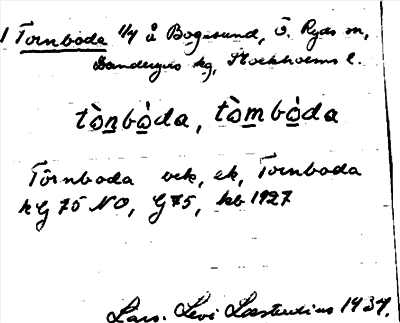 1 Tornboda 1/4 å Bogesund, Ö. Ryds sn,
Danderyds hg, Stockholms l.
tòṉbò̱da, tòm̱bò̱da
Tornboda ock, ek, Tornboda
hG 75 NO, G 75, kb 1927
Lars. Levi Læstadius 1934.